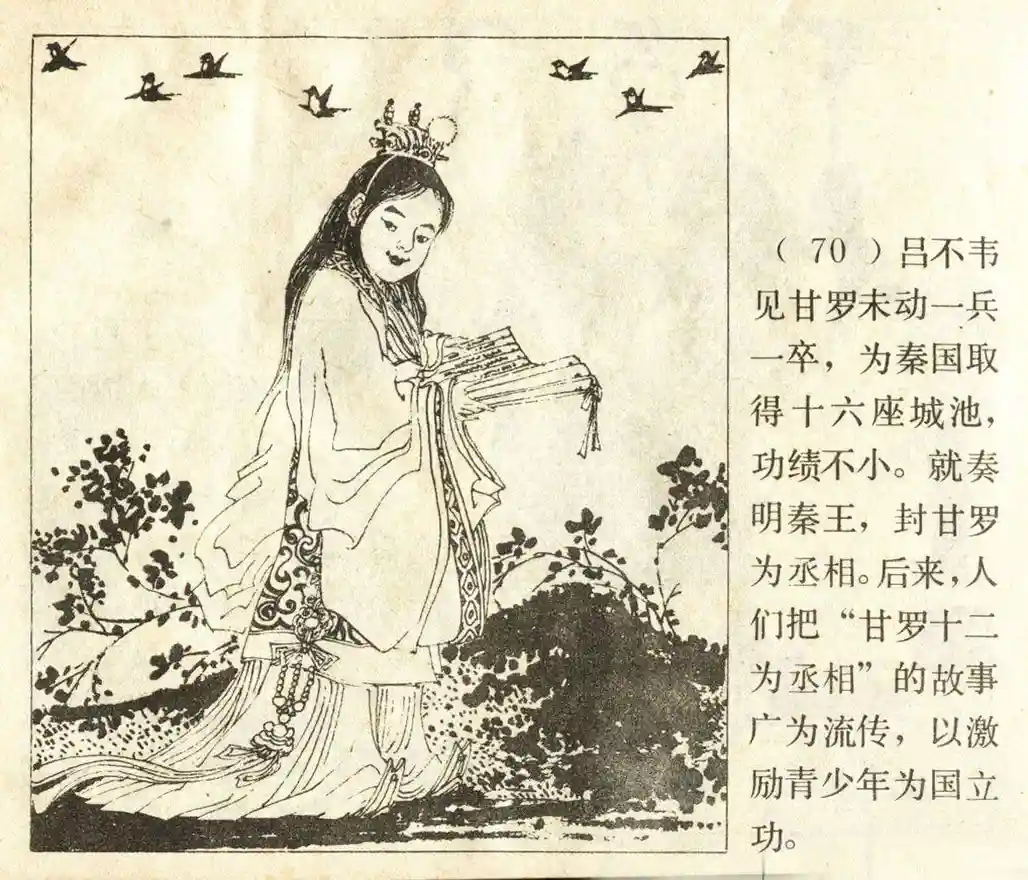 （70）吕不韦
见甘罗未动一兵
一卒，为秦国取
得十六座城池，
功绩不小。就奏
明秦王，封甘罗
为丞相。后来，人
们把“甘罗十二
为丞相”的故事
广为流传，以激
励青少年为国立
功。